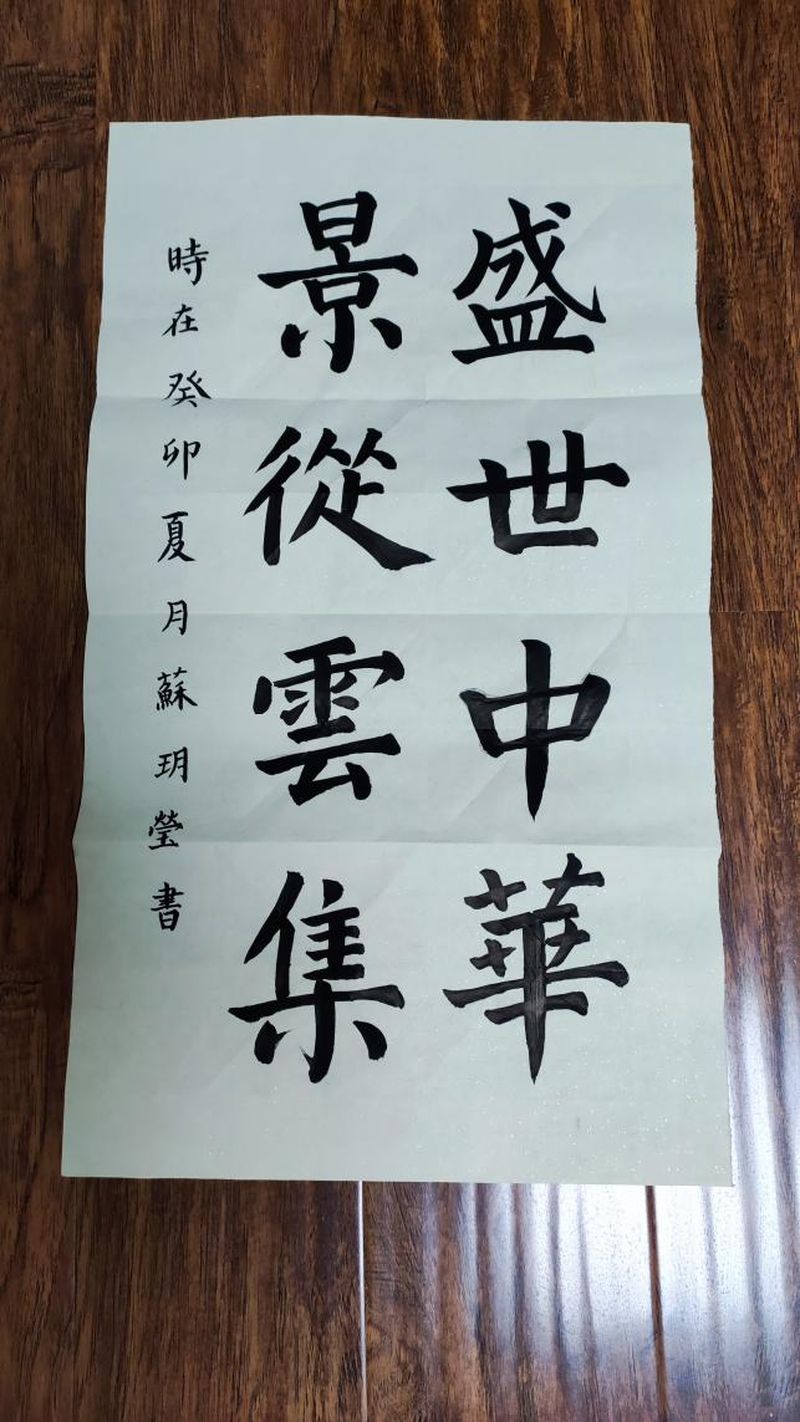 盛世中華
景從雲集
時在癸卯夏月蘇玥瑩書